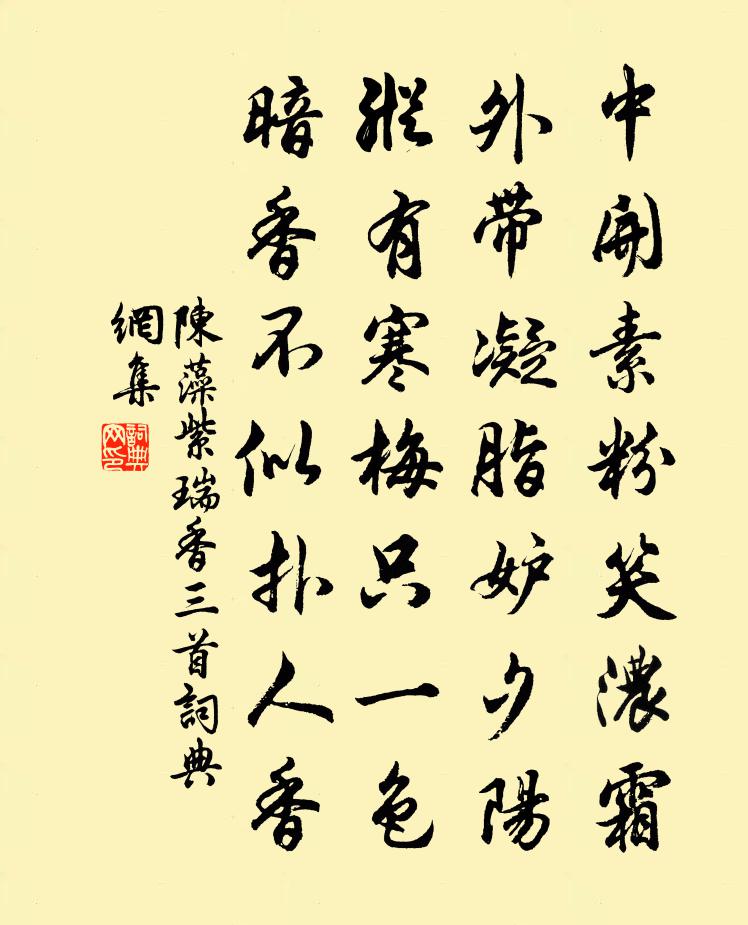 中開素粉笑濃霜
外帶凝脂妒夕陽
縱有寒梅只一色
暗香不似扑人香
陳藻紫瑞香三首詞典
網集
詞典
网印